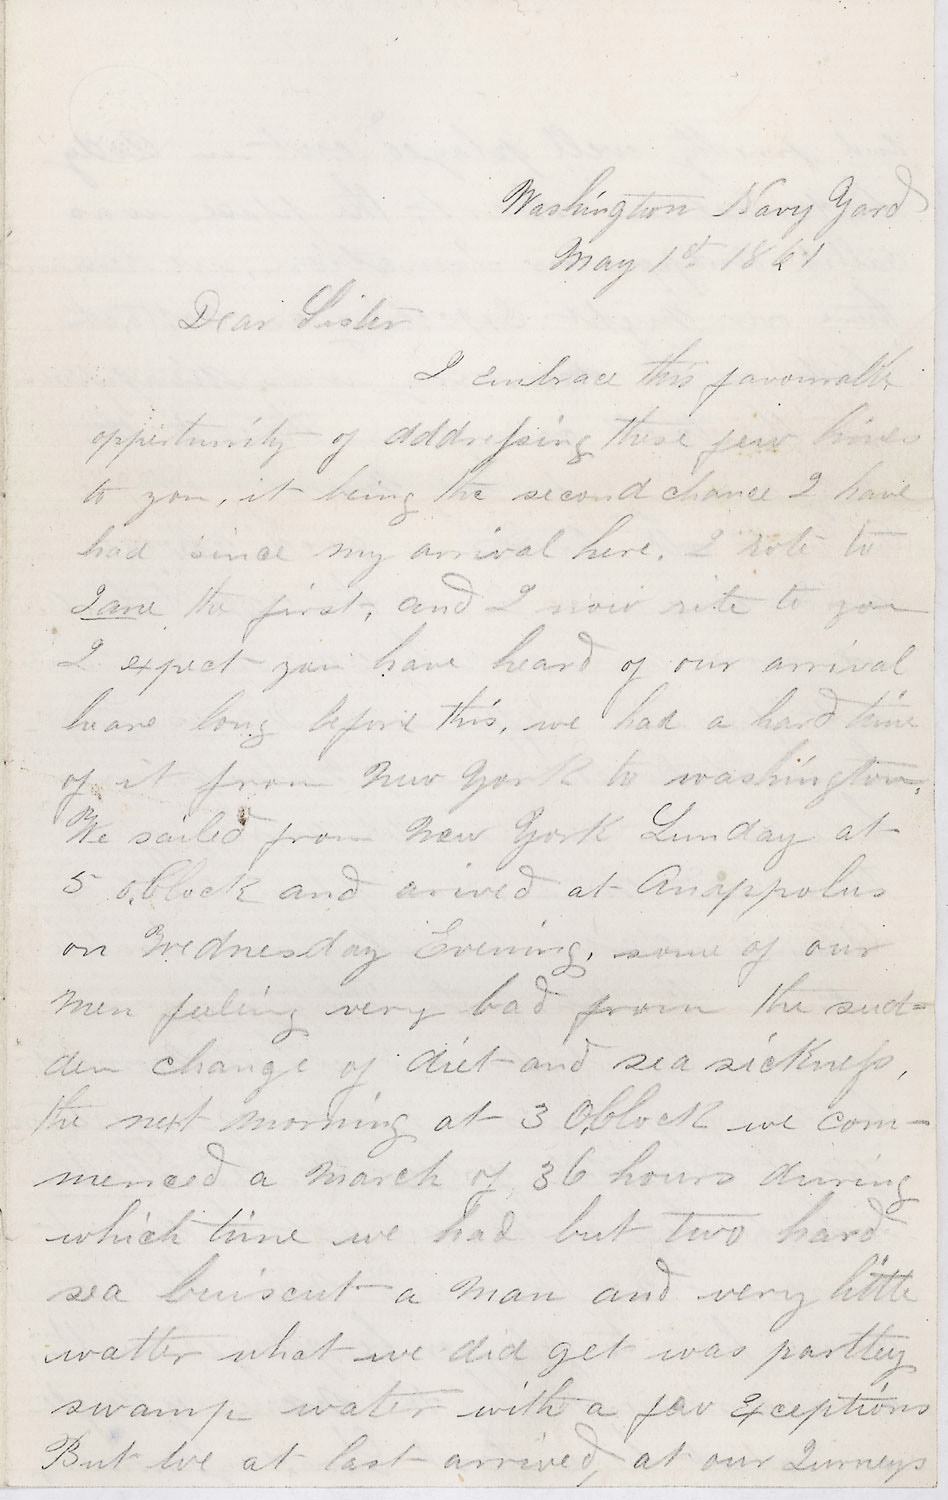 Washington Navy Yard
May 1st 1861
Dear Sister
I embrace this favourable
oppertunity of dddressing these few lines
to you, it being the second chance I have
had since my arrival here. I rote to
Jane the first, and I now rite to you
I expect you have heard of our arrival
heare long before this, we had a hard time
of it from New York to washington.
We sailed from New York Sunday at
5 oClock and arived at Anappolus
on Wednesday Evening, some of our
men feeling very bad from the sud=
den change of diet and sea sickness,
the next morning at 3 OClock we com-
menced a march of 36 hours during
which time we had but two hard
sea buiscut a man and very little
watter what we did get was parttey
swamp water with a few Exceptions
But we at last arrived, at our Jurneys